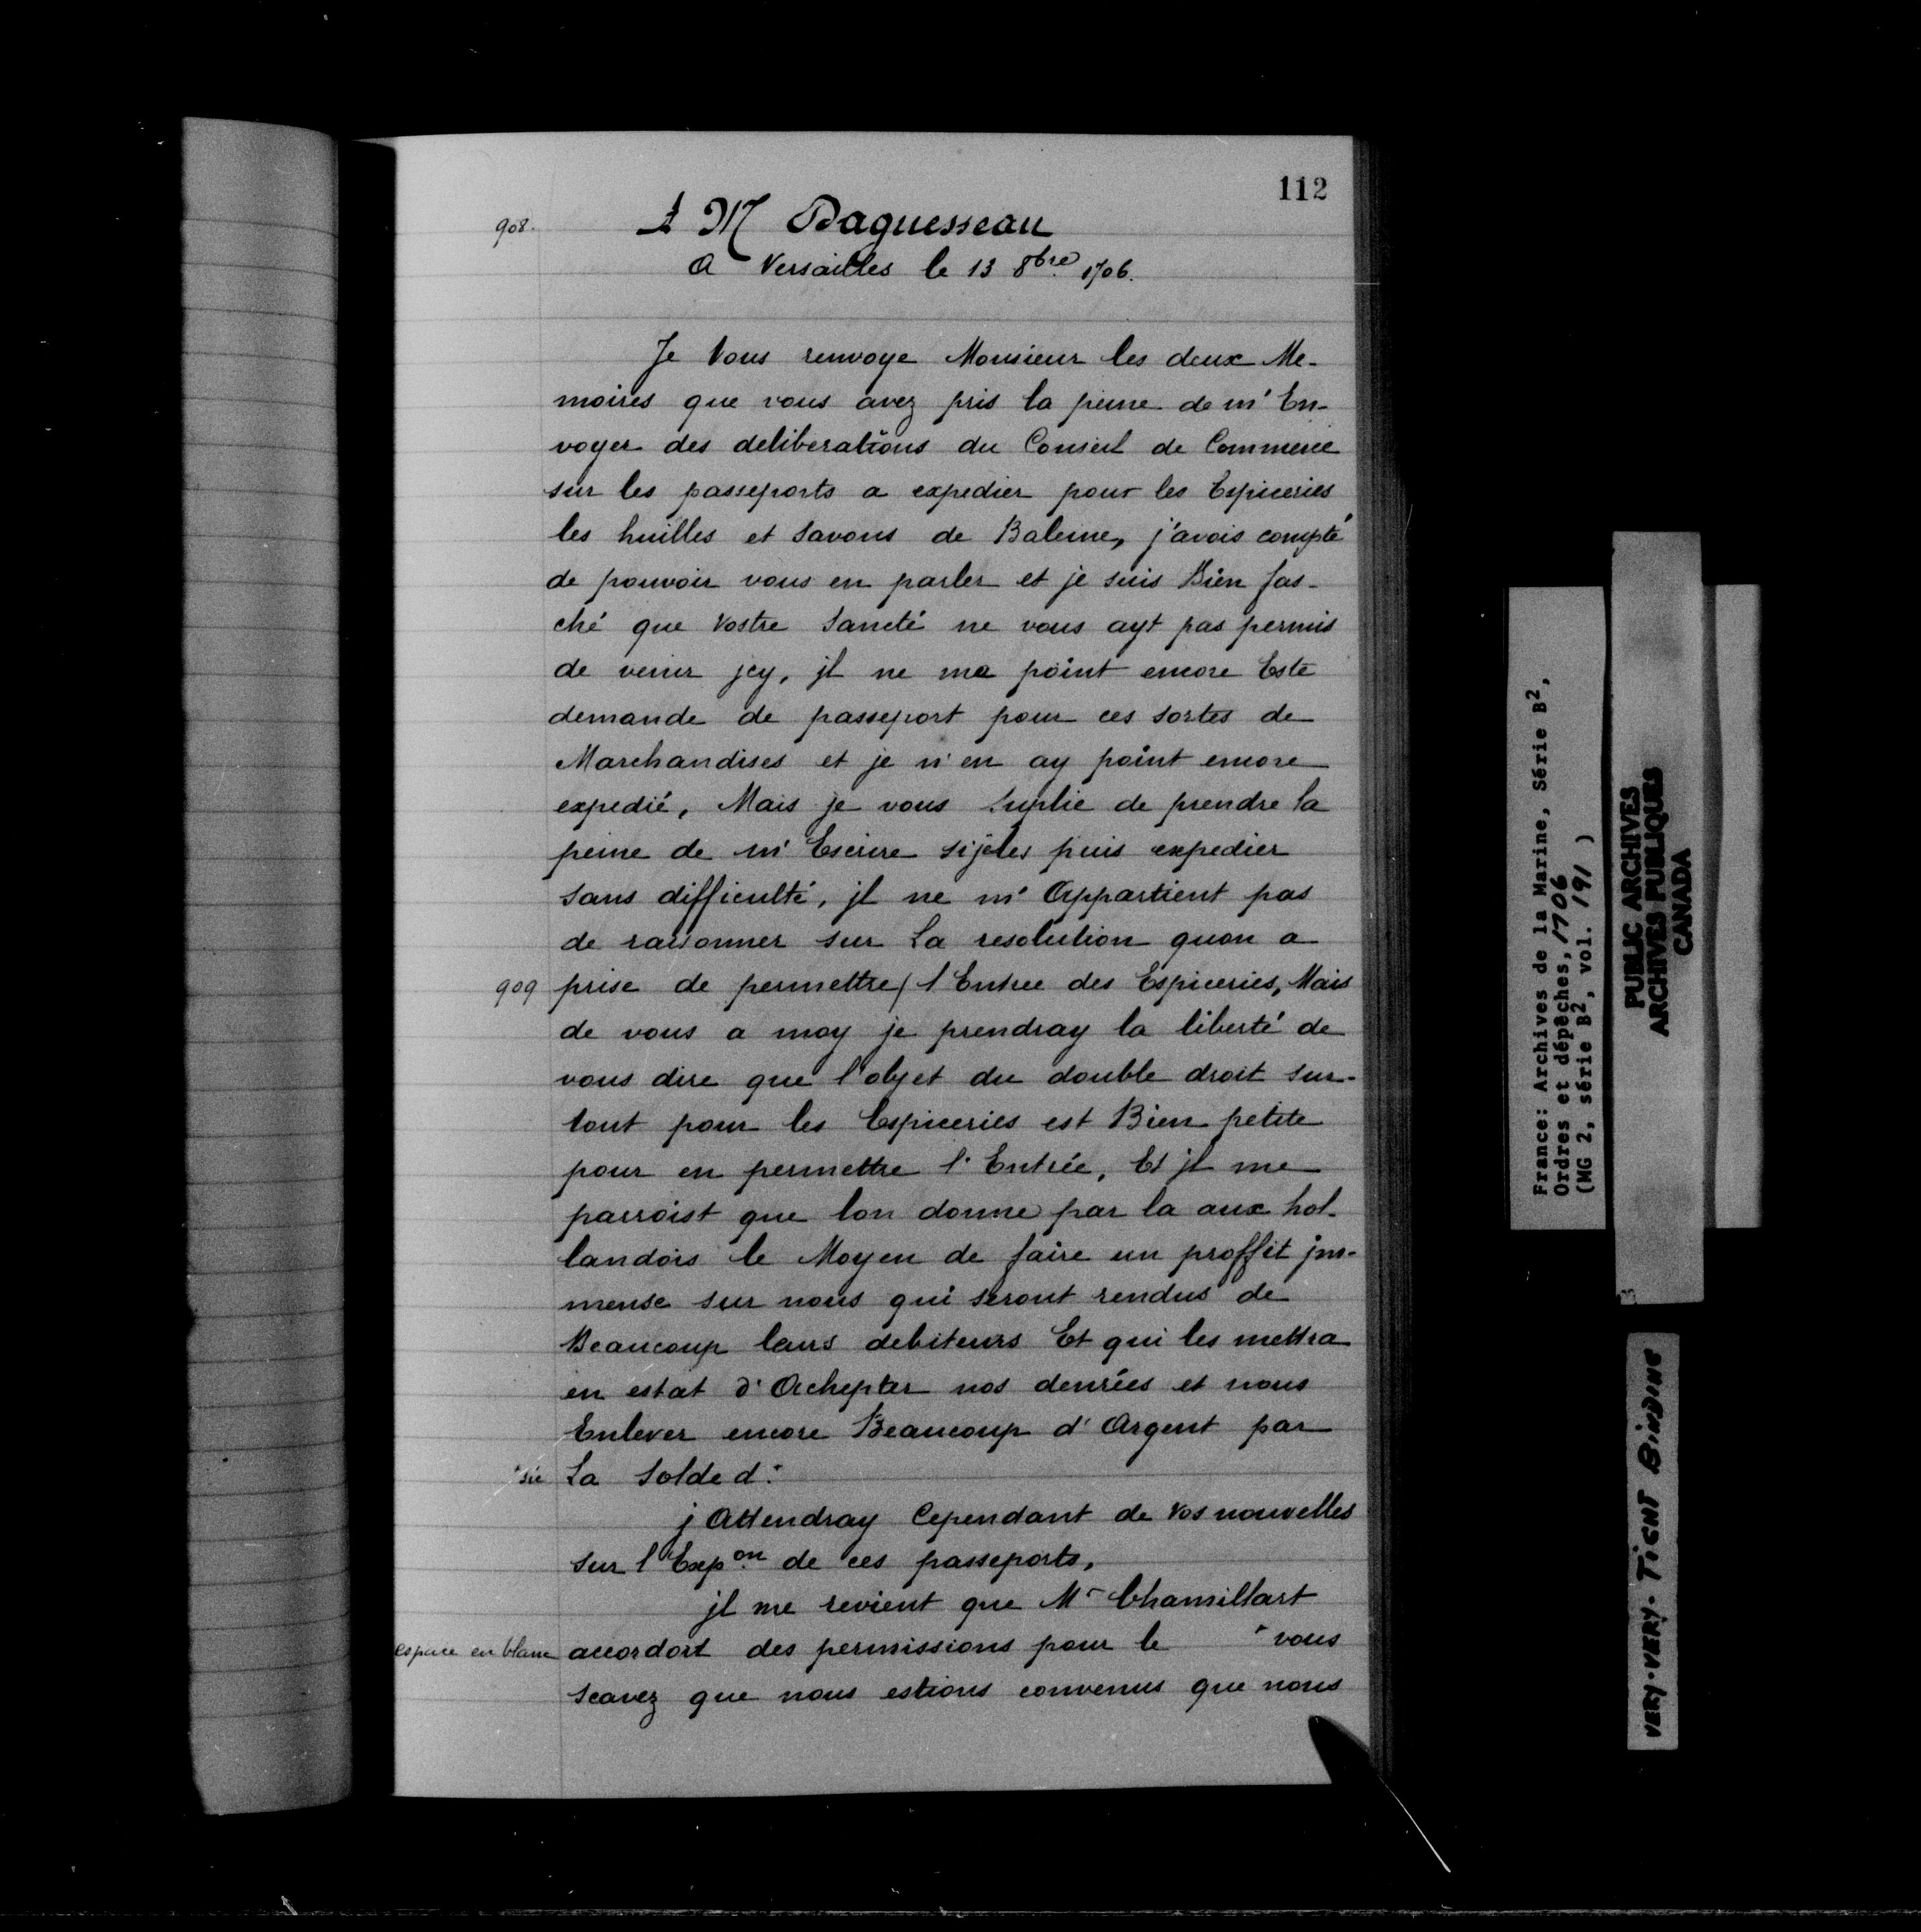 112
908. A M Daguesseau
A Versailles le 13 8bre 1706.
Je Vous renvoye Monsieur les deux Me-
moires que vous avez pris la peine de m'En-
voyer des deliberations du Conseil de Commerce
sur les passeports a expedier pour les Espiceries
les huilles et Savons de Baleine, j'avois compté
de pouvoir vous en parler et je suis Bien fas-
ché que Vostre Santé ne vous ayt pas permis
de venir jcy, jl ne ma point encore Esté
demande de passeport pour ces sortes de
Marchandises et je n'en ay point encore
expedié, Mais je vous Suplie de prendre la
peine de m'Escrire sijeles puis expedier
Sans difficulté, jl ne m'Appartient pas
de raisonner sur La resolution quon a
909 prise de permettre / l'Entree des Espiceries, Mais
de vous a moy je prendray la liberté de
vous dire que l'objet du double droit sur-
tout pour les Espiceries est Bien petite
pour en permettre l'Entrée, Et jl me
parroist que lon donne par la aux hol-
landois le Moyen de faire un proffit jm-
mense sur nous qui seront rendus de
Beaucoup leurs debiteurs Et qui les mettra
en estat d'Achepter nos denrées et nous
Enlever encore Beaucoup d'Argent par
sic La Solde d.
j Attendray Cependant de Vos nouvelles
sur l'Expon de ces passeports,
jl me revient que Mr Chamillart
espace en blanc accordoit des permissions pour le vous
scavez que nous estions convenus que nous
France: Archives de la Marine, Série B2,
Ordres et dépêches, 1706
(MG 2, série B2, vol. 191 )
PUBLIC ARCHIVES
ARCHIVES PUBLIQUES
CANADA
VERY-VERY-TIGHT BINDING